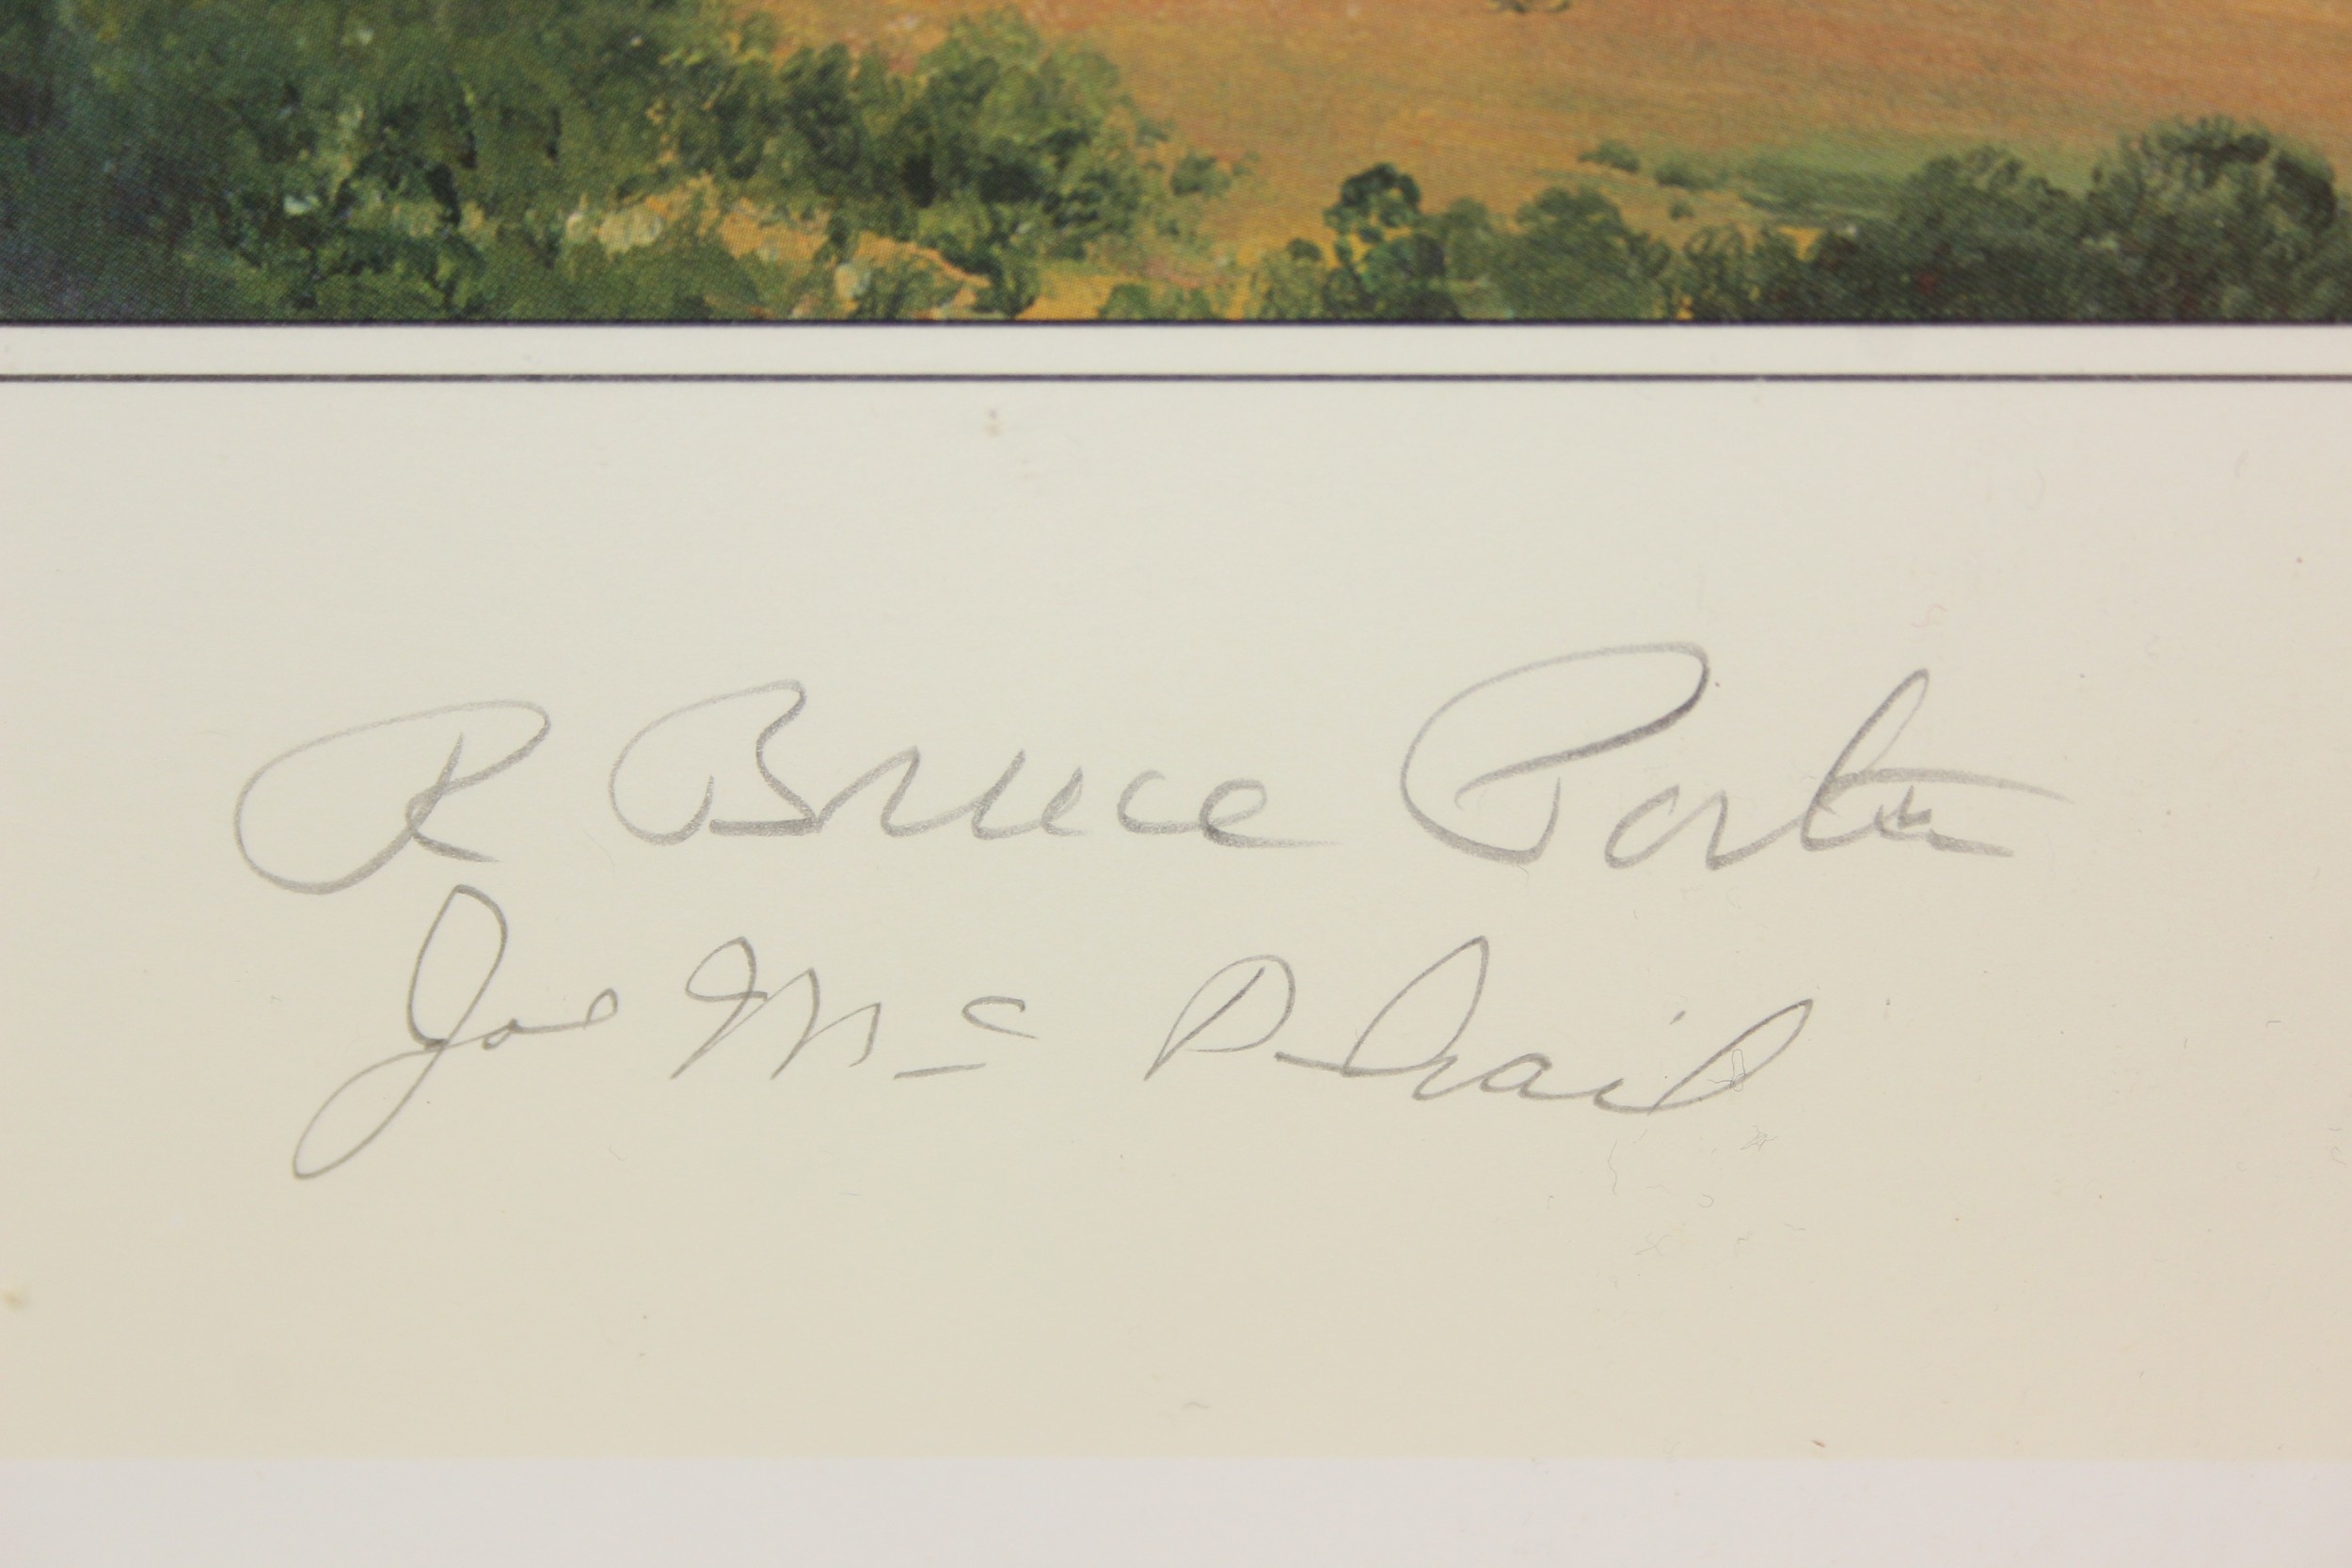 R Bruce Porter
Joe Mc Phail